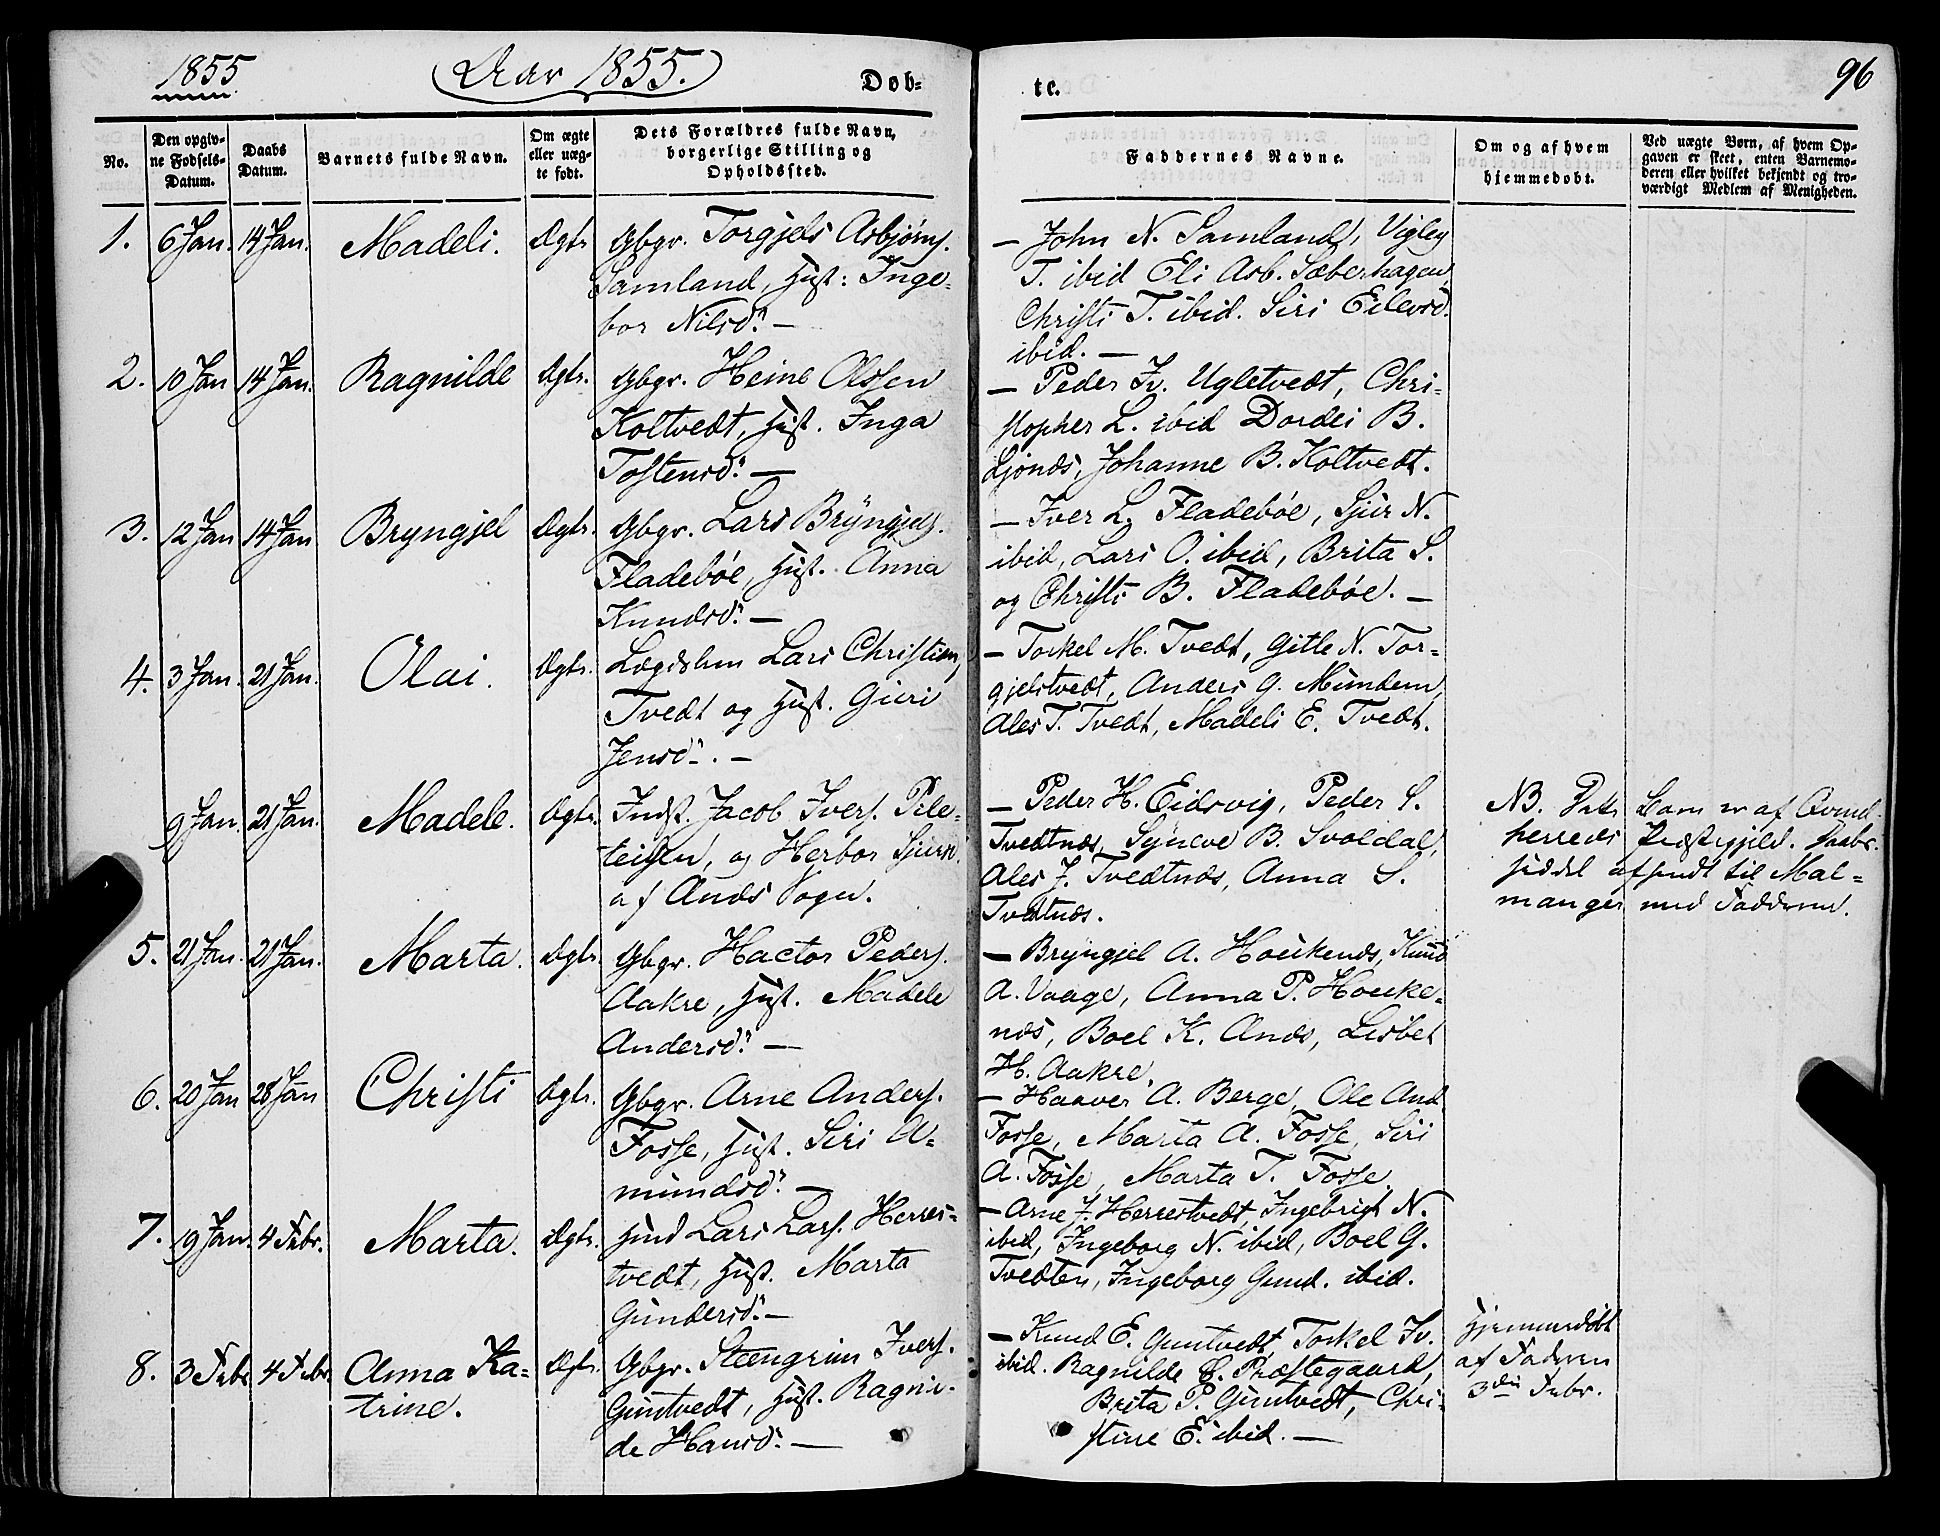 1855
Aar 1855.
Døb-
te.
96
No.
Den opgiv-
ne Fødsels-
Datum.
Daabs
Datum.
Barnets fulde Navn.
Om ægte
eller uæg-
te født.
Dets Forældres fulde Navn,
borgerlige Stilling og
Opholdssted.
Faddernes Navne.
Om og af hvem
hjemmedøbt.
Ved uægte Børn, af hvem Op-
gaven er skeet, enten Barnemo-
deren eller hvilket bekjendt og tro-
værdigt Medlem af Menigheden.
1. 6 Jan. 14 Jan. Madeli. Ægte
Gbgr. Torgjels Asbjørns.
Samland, Hust: Inge-
bor Nilsd. —
— John N. Samland, Vigley
T. ibid Eli Asb. Sæberhagen,
Christi T. ibid. Siri Eilevsd.
ibid. —
2. 10 Jan 14 Jan. Ragnilde Ægte.
Gbgr. Heine Olssen
Koltvedt, Hust. Inga
Tostensd: —
— Peder Iv. Ugletvedt, Chri-
stopher L. ibid Dordei B.
Ljonds, Johanne B. Koltvedt.
3. 12 Jan 14 Jan Bryngjel Ægte.
Gbgr. Lars Bryngjels.
Fladebøe, Hust. Anna
Knudsd: —
— Iver L. Fladebøe, Sjur N.
ibid, Lars O. ibid, Brita S.
og Christi B. Fladebøe. —
4. 3 Jan. 21 Jan. Olai. Ægte.
Lægdslem Lars Christians,
Tvedt og Hust. Guri
Jensd. —
— Torkel M. Tvedt, Gitle N. Tor-
gjelstvedt, Anders G. Mundem,
Ales T. Tvedt, Madeli E. Tvedt.
9 Jan. 21 Jan. Madele. Ægte.
Indst. Jacob Ivers. Pele-
teigen, og Herbor Sjursd.
af Ænds Sogn.
— Peder H. Eidsvig, Peder S.
Tvedtnæs, Syneve B. Svoldal,
Ales J. Tvedtnæs, Anna S.
Tvedtnæs.
NB. Dette Barn er af Qvind-
herreds Præstegjeld. Daabs-
seddel afsendt til Mal-
manger med Fadderne.
5. 21 Jan. 21 Jan. Marta. Ægte.
Gbgr. Hactor Peders.
Aakre, Hust. Madele
Andersd: —
— Bryngjel A. Houkenæs, Knud
A. Vaage, Anna P. Houke-
næs, Boel K. Ænæs, Lisbet
H. Aakre.
6. 20 Jan 28 Jan Christi Ægte.
Gbgr. Arne Anders.
Fosse, Hust. Siri A-
mundsd: —
— Haaver A. Berge, Ole And
Fosse, Marta A. Fosse, Siri
A. Fosse, Marta T. Fosse.
7. 19 Jan. 4 Febr. Marta. Ægte.
Hmd Lars Lars. Herres-
tvedt, Hust. Marta
Gundersd: —
— Arne J. Herrestvedt, Ingebrigt N.
ibid, Ingeborg N. ibid, Boel G.
Tvedten, Ingeborg Gund. ibid.
8. 3 Febr 4 Febr. Anna Ka-
trine. Ægte.
Gbgr. Steengrim Ivers.
Guntvedt, Hust. Ragni-
de Hansd: —
— Knud E. Guntvedt, Torkel Iv.
ibid. Ragnilde C. Præstegaard,
Brita P. Guntvedt, Chri-
stine E. ibid. —
Hjemmedøbt
af Faderen
3die Febr.